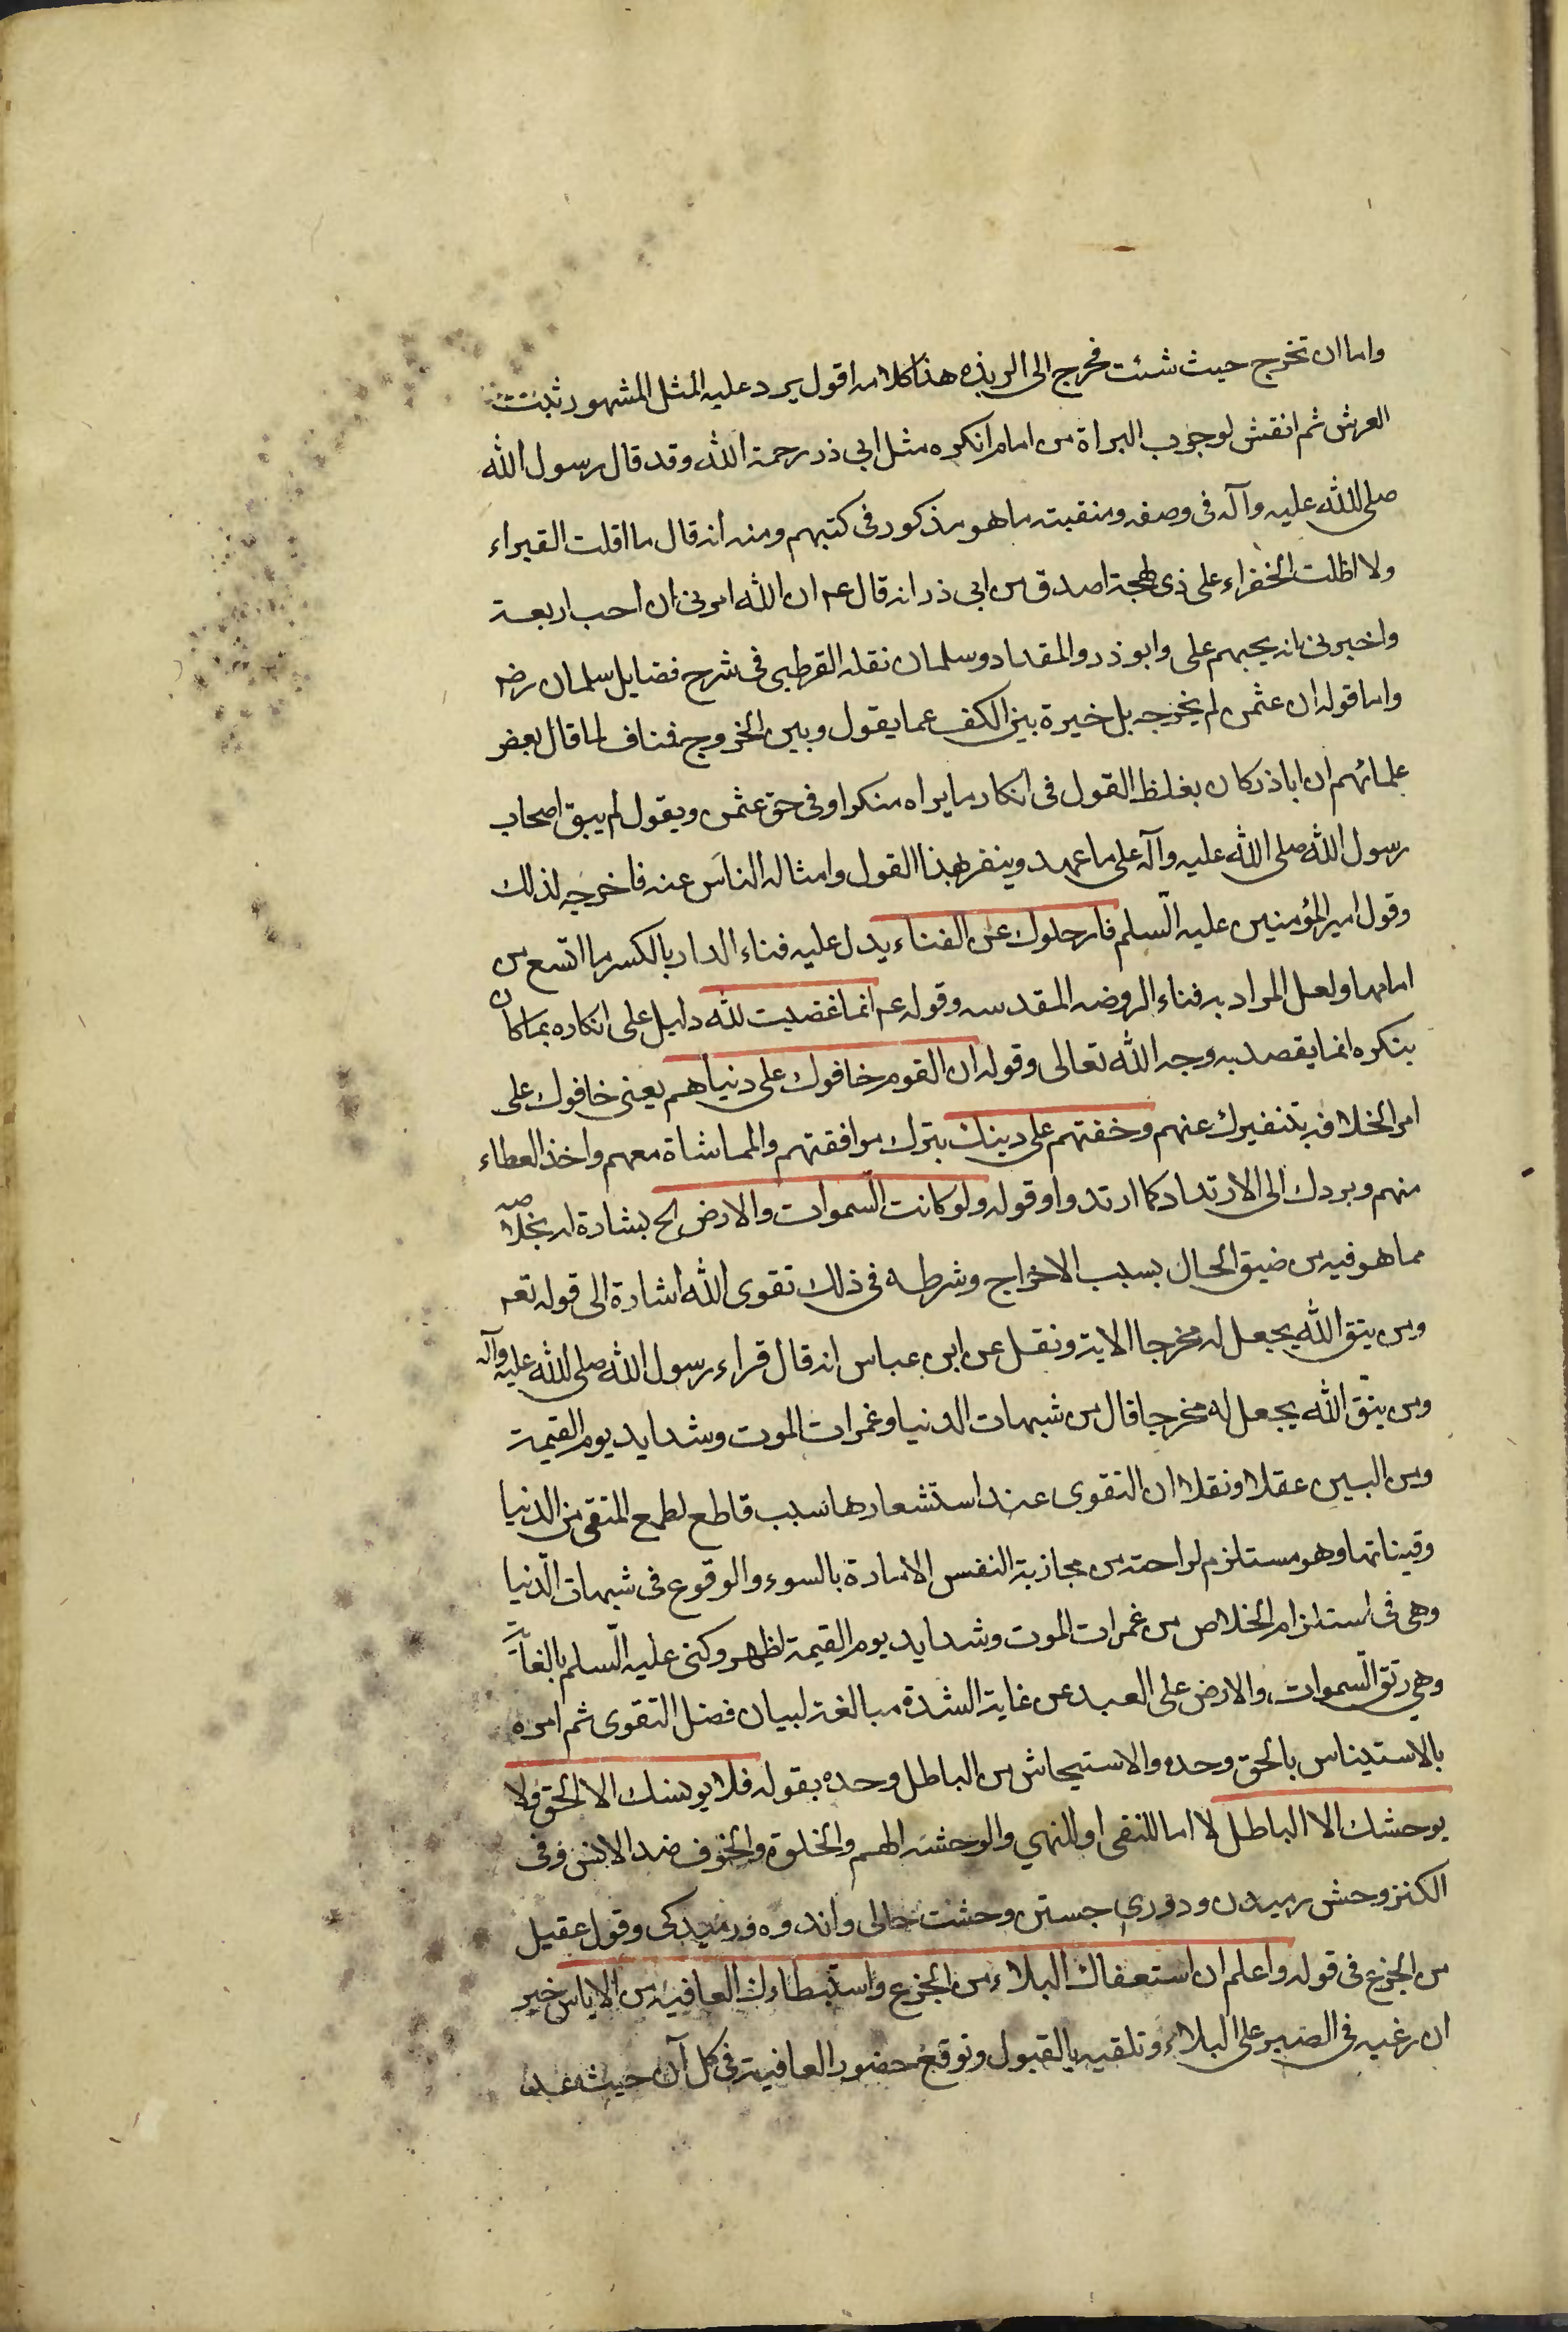 واما ان تخرج حيث شئت فخرج الى الربذه هذا كلامه اقول يرد عليه المثل المشهور ثبت
العرش ثم انقش لوجوب البراة من امام انكره مثل ابى ذر رحمة الله وقد قال رسول الله
صلى الله عليه وآله فى وصفه ومنقبته ما هو مذكور فى كتبهم ومنه انه قال ما اقلت الغبراء
ولا اظلت الخضراء على ذى لهجة اصدق من ابى ذر انه قال عم ان الله امرنى ان احب اربعة
واخبرنى انه يحبهم على وابو ذر والمقداد وسلمان نقله القرطبى فى شرح فضايل سلمان رضه
واما قوله ان عثمن لم يخرجه بل خيرة بين الكف عما يقول وبين الخروج فناف لما قال بعض
علمائهم ان اباذر كان يغلظ القول فى انكار ما يراه منكرا وفى حق عثمن ويقول لم يبق اصحاب
رسول الله صلى الله عليه وآله على ما عهد وينفر بهذا القول وامثاله الناس عنه فاخرجه لذلك
وقول امير المؤمنين عليه السلم فارحلوك عن الفناء يدل عليه فناء الدار بالكسر ما اتسع من
امامها ولعل المراد به فناء الروضه المقدسه وقوله عم انما غضبت لله دليل على انكاره بما كان
ينكره انما يقصد به وجه الله تعالى وقوله ان القوم خافوك على دنياهم يعنى خافوك على
امر الخلافه بتنفيرك عنهم وخفتهم على دينك بترك موافقتهم والمماشاة معهم واخذ العطاء
منهم ويردك الى الارتداد كما ارتدوا وقوله ولو كانت السموات والارض الخ بشارة له بخلاصه
مما هو فيه من ضيق الحال بسبب الاخراج وشرطه فى ذلك تقوى الله اشارة الى قوله تعه
ومن يتق الله يجعل له مخرجا الاية ونقل عن ابن عباس انه قال قراء رسول الله صلى الله عليه وآله
ومن يتق الله يجعل له مخرجا قال من شبهات الدنيا وغمرات الموت وشدايد يوم القيمة
ومن البين عقلا ونقلا ان التقوى عند استشعارها سبب قاطع لطمع المتقى من الدنيا
وقيناتها وهو مستلزم لراحته من مجاذبة النفس الامارة بالسوء والوقوع فى شبهات الدنيا
وهى فى استلزام الخلاص من غمرات الموت وشدايد يوم القيمة لظهر وكنى عليه السلم بالغاية
وهي رتق السموات والارض على العبد عن غاية الشدة مبالغة لبيان فضل التقوى ثم امره
بالاستيناس بالحق وحده والاستيحاش من الباطل وحده بقوله فلا يونسك الا الحق ولا
يوحشك الا الباطل لا اما للنفى او للنهي والوحشه الهم والخلوة والخوف ضد الانس وفى
الكنز وحش رميدن ودورى جستن وحشت خالى واندوه ورميدكى وقول عقيل
من الجزع فى قوله واعلم ان استعفاك البلاء من الجزع واستبطاءك العافيه من الاياس خير
ان رغبه فى الصبر على البلاء وتلقيه بالقبول وتوقع حضور العافية فى كل آن حيث